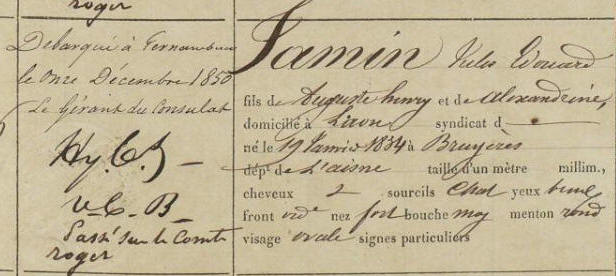 roger
Debarqué à Fernambuco
le Onze Décembre 1850
Le Gérant du Consulat
Hy. C.
v. C. B
Passé sur le Comte
roger
Jamin Jules Edouard
fils de Auguste henry et de Alexandrine
domicilié à syndicat d —
né le 19 Janvier 1834 à Bruyères
dépt de L'aisne taille d'un mètre millim.,
cheveux sourcils Chat yeux bruns
front ordre nez fort bouche moy menton rond
visage ovale signes particuliers